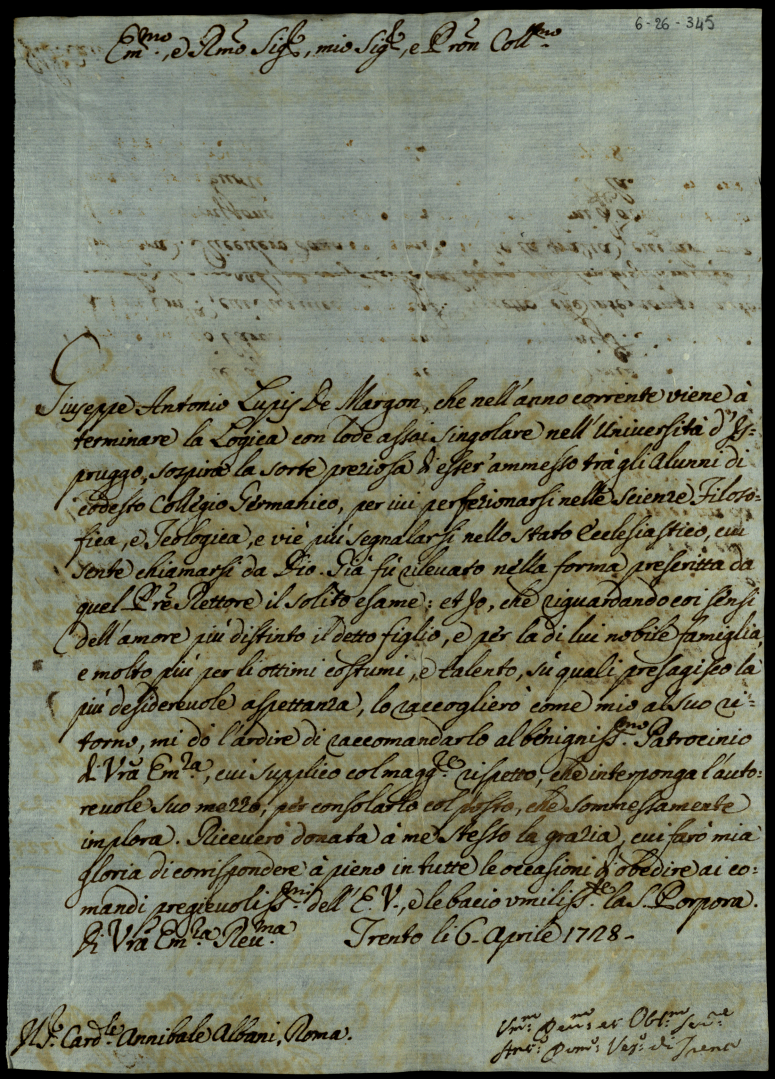 6-26-345
Em.mo, e Rmo Sig.re, mio Sig.re, e Prõn Coll.mo
Giuseppe Antonio Lupis De Margon, che nell'anno corrente viene à
terminare la Logica con lode assai singolare nell'Università d'Js=
pruggo, sospira la sorte preziosa di esser' ammesso trà gli Alunni di
codesto Collegio Germanico, per ivi perfezionarsi nelle scienze Filoso=
fica, e Teologica, e viè più segnalarsi nello stato Ecclesiastico, cui
sente chiamarsi da Dio. Già fù rilevato nella forma prescritta da
quel Pre Rettore il solito esame: et Jo, che riguardando coi sensi
dell'amore più distinto il detto figlio, e per la di lui nobile famiglia,
e molto più per li ottimi costumi, e talento, sù quali presagisco la
più desiderevole aspettanza, lo raccoglierò come mio al suo ri=
torno, mi dò l'ardire di raccomandarlo al benigniss.mo Patrocinio
di Vrã Em.za, cui supplico col magg.re rispetto, che interponga l'auto=
revole suo mezzo, per consolarlo col posto, che sommessamente
implora. Riceverò donata à me stesso la grazia, cui farò mia
gloria di corrispondere à pieno in tutte le occasioni d'obedire ai co=
mandi pregievoliss.mi dell'E.V., e le bacio umiliss.te la S. Porpora.
Di Vrã Em.za Rev.ma Trento li 6. Aprile 1728.
Sr. Card.le Annibale Albani, Roma.
Um.mo Dev.mo et Obl.mo Ser.re
Ant.o Dom.o Ves.o di Trento